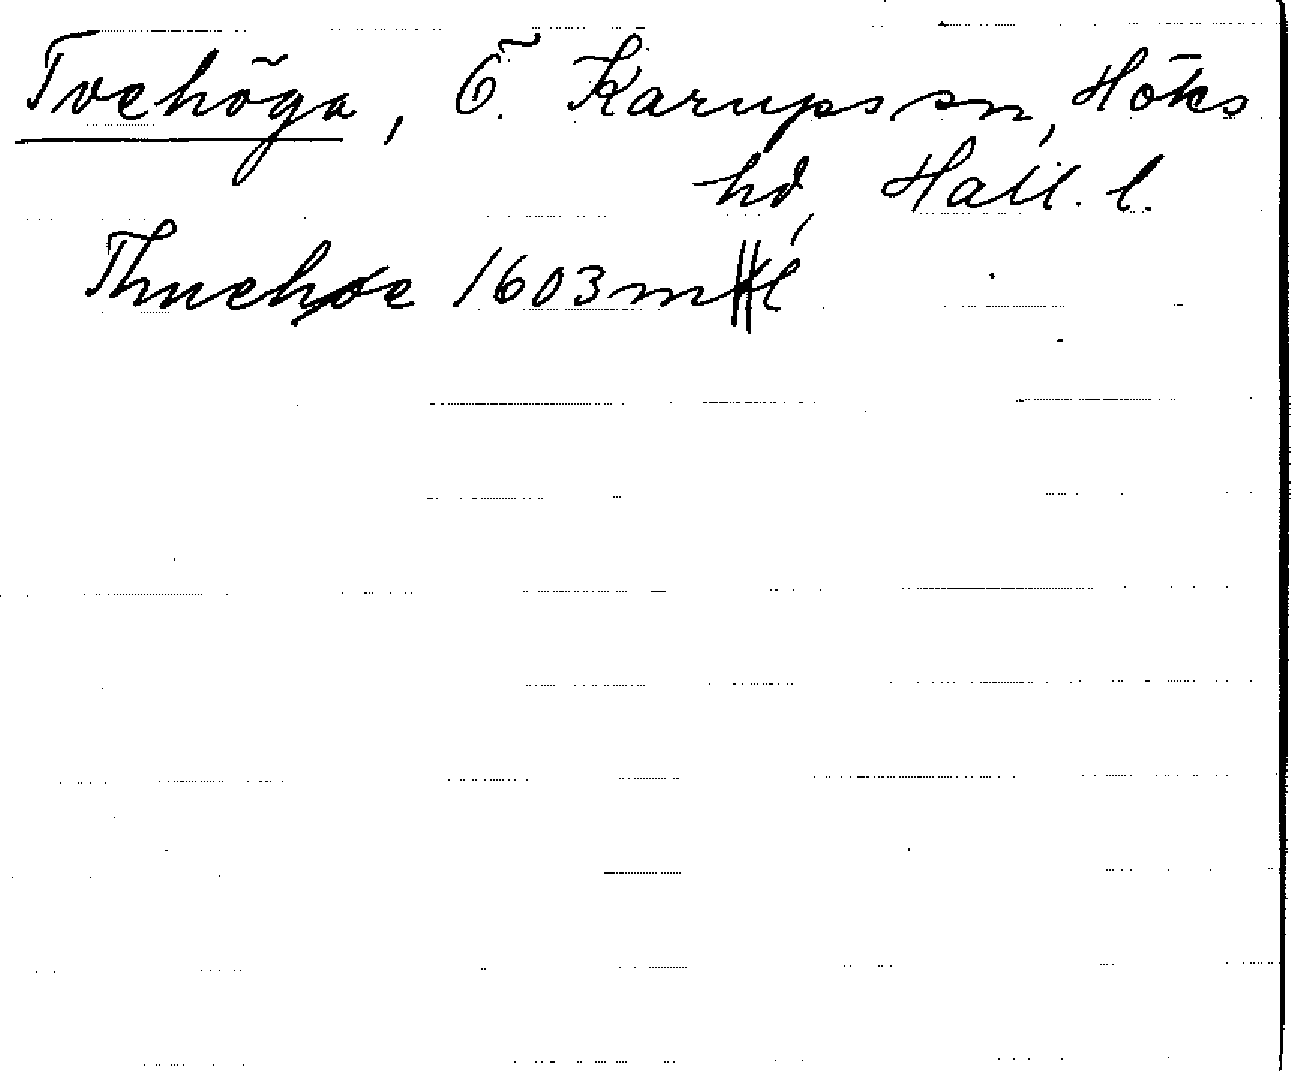 Tvehöga, Ö. Karups sn, Höks
hd, Hall. l.
Thuehøe 1603 m